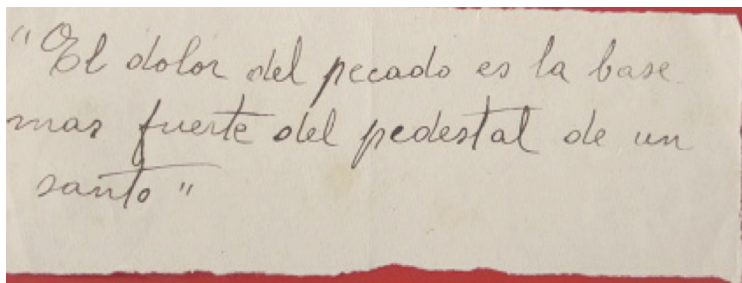 "El dolor del pecado es la base
mas fuerte del pedestal de un
santo"